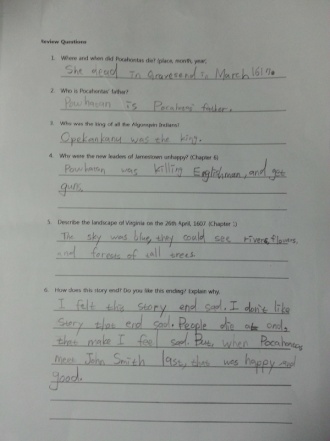 Review Questions
1. Where and when did Pocahontas die? (place, month, year)
She died in Gravesend in March 1617.
2. Who is Pocahontas' father?
Powhatan is Pocahontas' father.
3. Who was the king of all the Algonquin Indians?
Opekankanu was the king.
4. Why were the new leaders of Jamestown unhappy? (Chapter 6)
Powhatan was killing Englishman, and get
gun.
5. Describe the landscape of Virginia on the 26th April, 1607. (Chapter 1)
The sky was blue, they could see rivers, flowers
and forests of tall trees.
6. How does this story end? Do you like this ending? Explain why.
I felt this story end sad. I don't like
story that end sad. People die at end,
that make I feel sad. But, when Pocahontas
meet John Smith last, that was happy and
good.